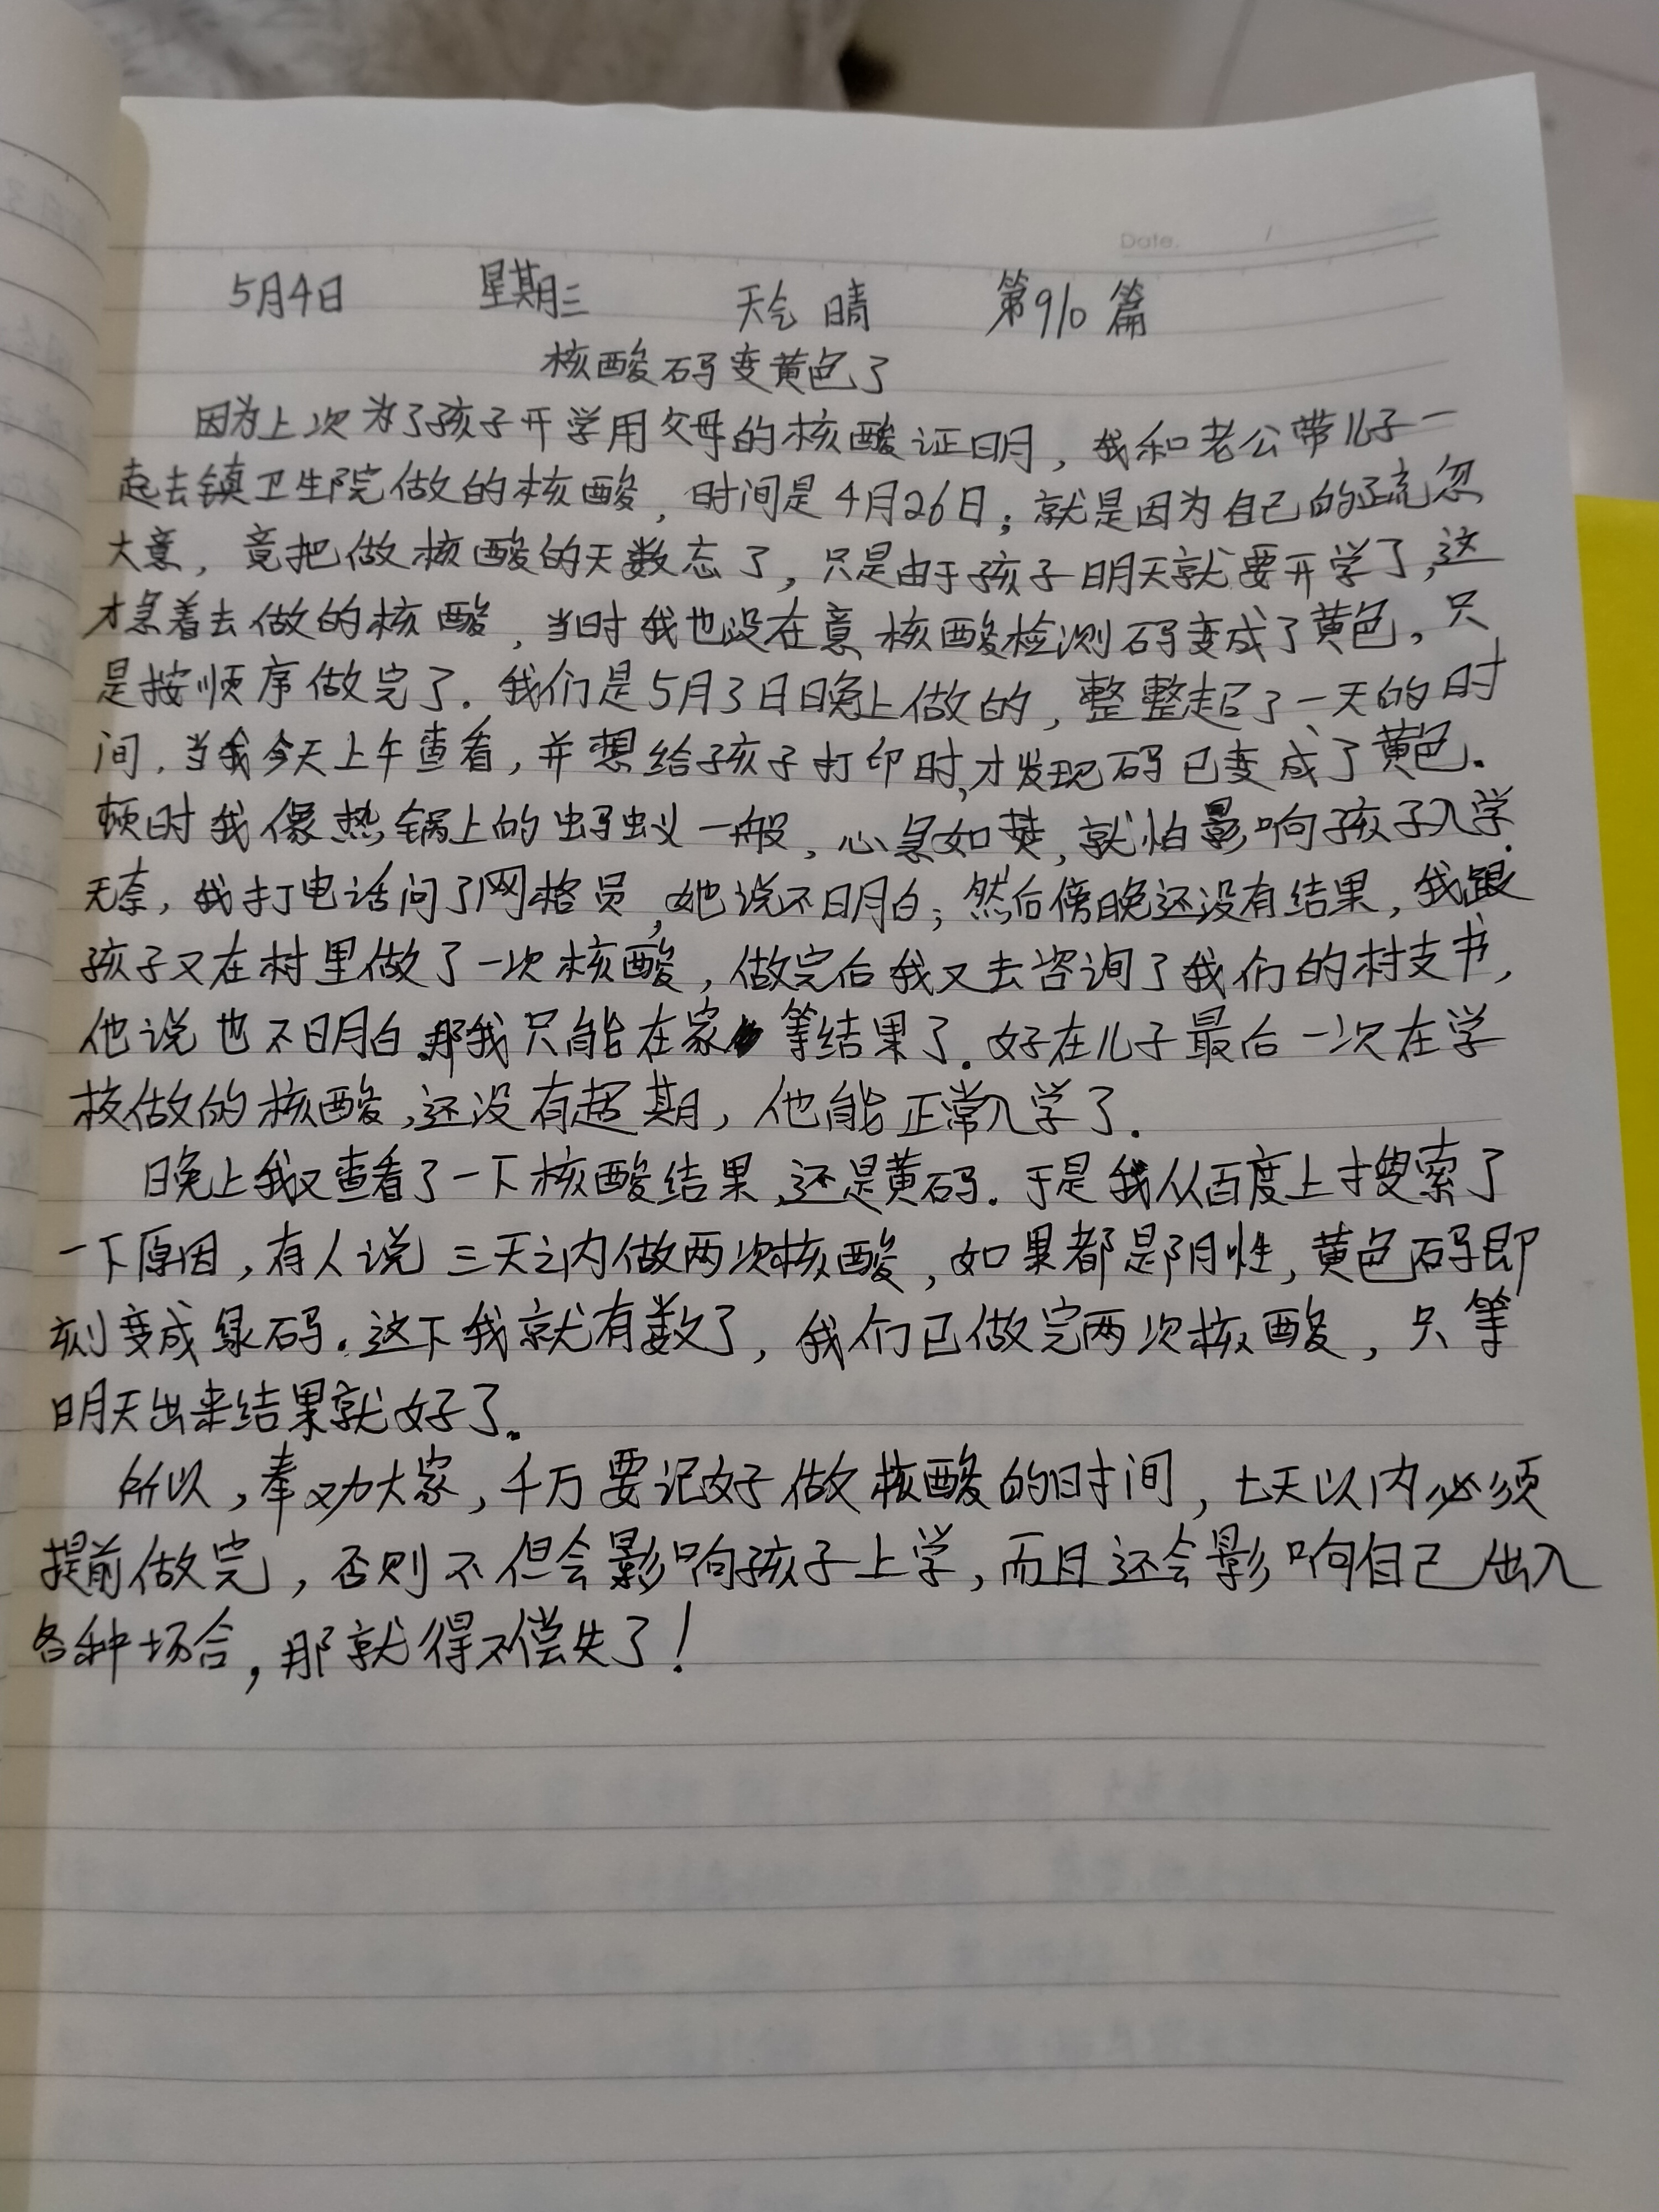 Date. /
5月4日 星期三 天气 晴 第910篇
核酸码变黄色了
因为上次为了孩子开学用父母的核酸证明，我和老公带儿子一
起去镇卫生院做的核酸，时间是4月26日；就是因为自己的疏忽
大意，竟把做核酸的天数忘了，只是由于孩子明天就要开学了，这
才急着去做的核酸，当时我也没在意核酸检测码变成了黄色，只
是按顺序做完了．我们是5月3日晚上做的，整整超了一天的时
间．当我今天上午查看，并想给孩子打印时，才发现码已变成了黄色．
顿时我像热锅上的蚂蚁一般，心急如焚，就怕影响孩子入学．
无奈，我打电话问了网格员，她说不明白；然后傍晚还没有结果，我跟
孩子又在村里做了一次核酸，做完后我又去咨询了我们的村支书，
他说也不明白．那我只能在家等结果了．好在儿子最后一次在学
校做的核酸，还没有超期，他能正常入学了．
晚上我又查看了一下核酸结果，还是黄码．于是我从百度上搜索了
一下原因，有人说三天之内做两次核酸，如果都是阴性，黄色码即
刻变成绿码．这下我就有数了，我们已做完两次核酸，只等
明天出来结果就好了．
所以，奉劝大家，千万要记好做核酸的时间，七天以内必须
提前做完，否则不但会影响孩子上学，而且还会影响自己出入
各种场合，那就得不偿失了！